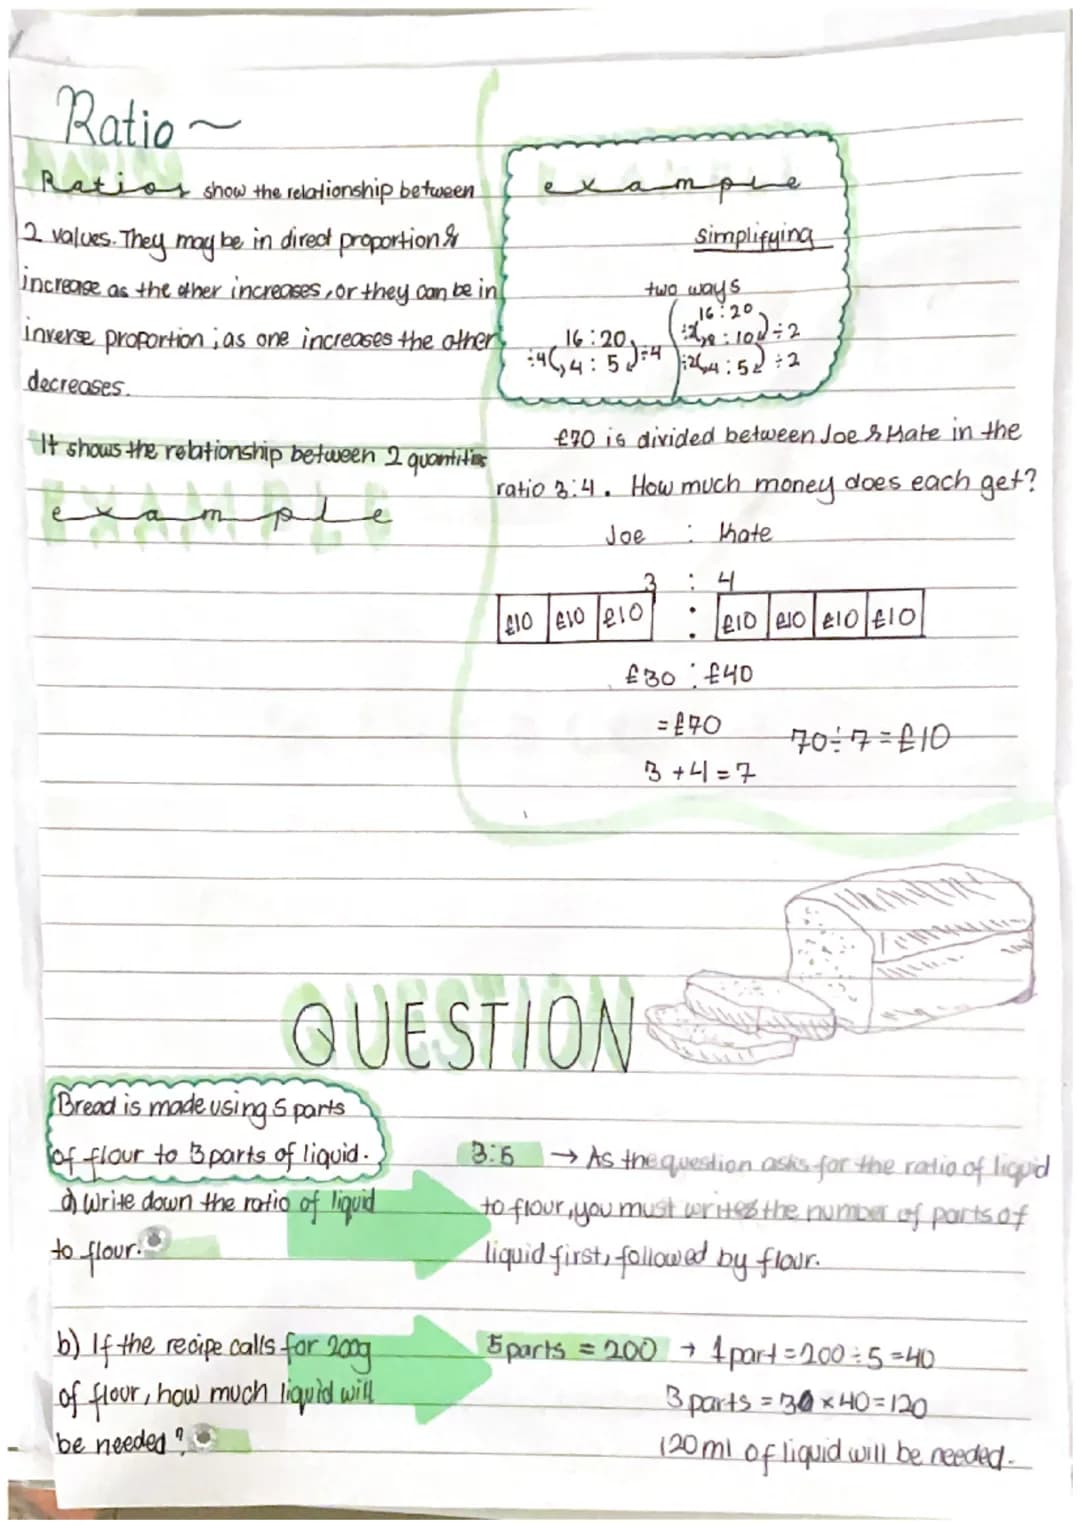 Ratio ~
Ratios show the relationship between
2 values. They may be in direct proportion &
increase as the other increases, or they can be in
inverse proportion ; as one increases the other
decreases.
It shows the relationship between 2 quantities
example
example
simplifying
two ways
16 : 20
÷4 ( 4 : 5 ) ÷4
16 : 20
÷2 ( 8 : 10 ) ÷2
÷2 ( 4 : 5 ) ÷2
£70 is divided between Joe & Kate in the
ratio 3:4. How much money does each get?
Joe : Kate
3 : 4
£10 £10 £10 : £10 £10 £10 £10
£30 : £40
= £70
70÷7=£10
3+4=7
QUESTION
Bread is made using 5 parts
of flour to 3 parts of liquid.
a) Write down the ratio of liquid
to flour.
3:5 → As the question asks for the ratio of liquid
to flour, you must writes the number of parts of
liquid first, followed by flour.
b) If the recipe calls for 200g
of flour, how much liquid will
be needed?
5 parts = 200 → 1 part = 200÷5 = 40
3 parts = 3 × 40 = 120
120ml of liquid will be needed.